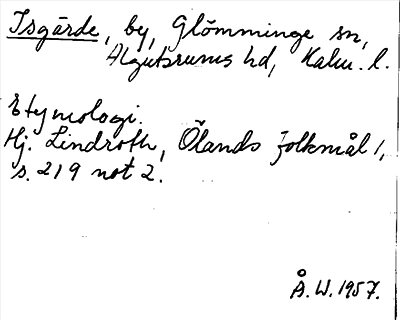 Isgärde, by, Glömminge sn,
Algutsrums hd, Kalm. l.
Etymologi.
Hj. Lindroth, Ölands folkmål 1,
s. 219 not 2.
Å. W. 1957.